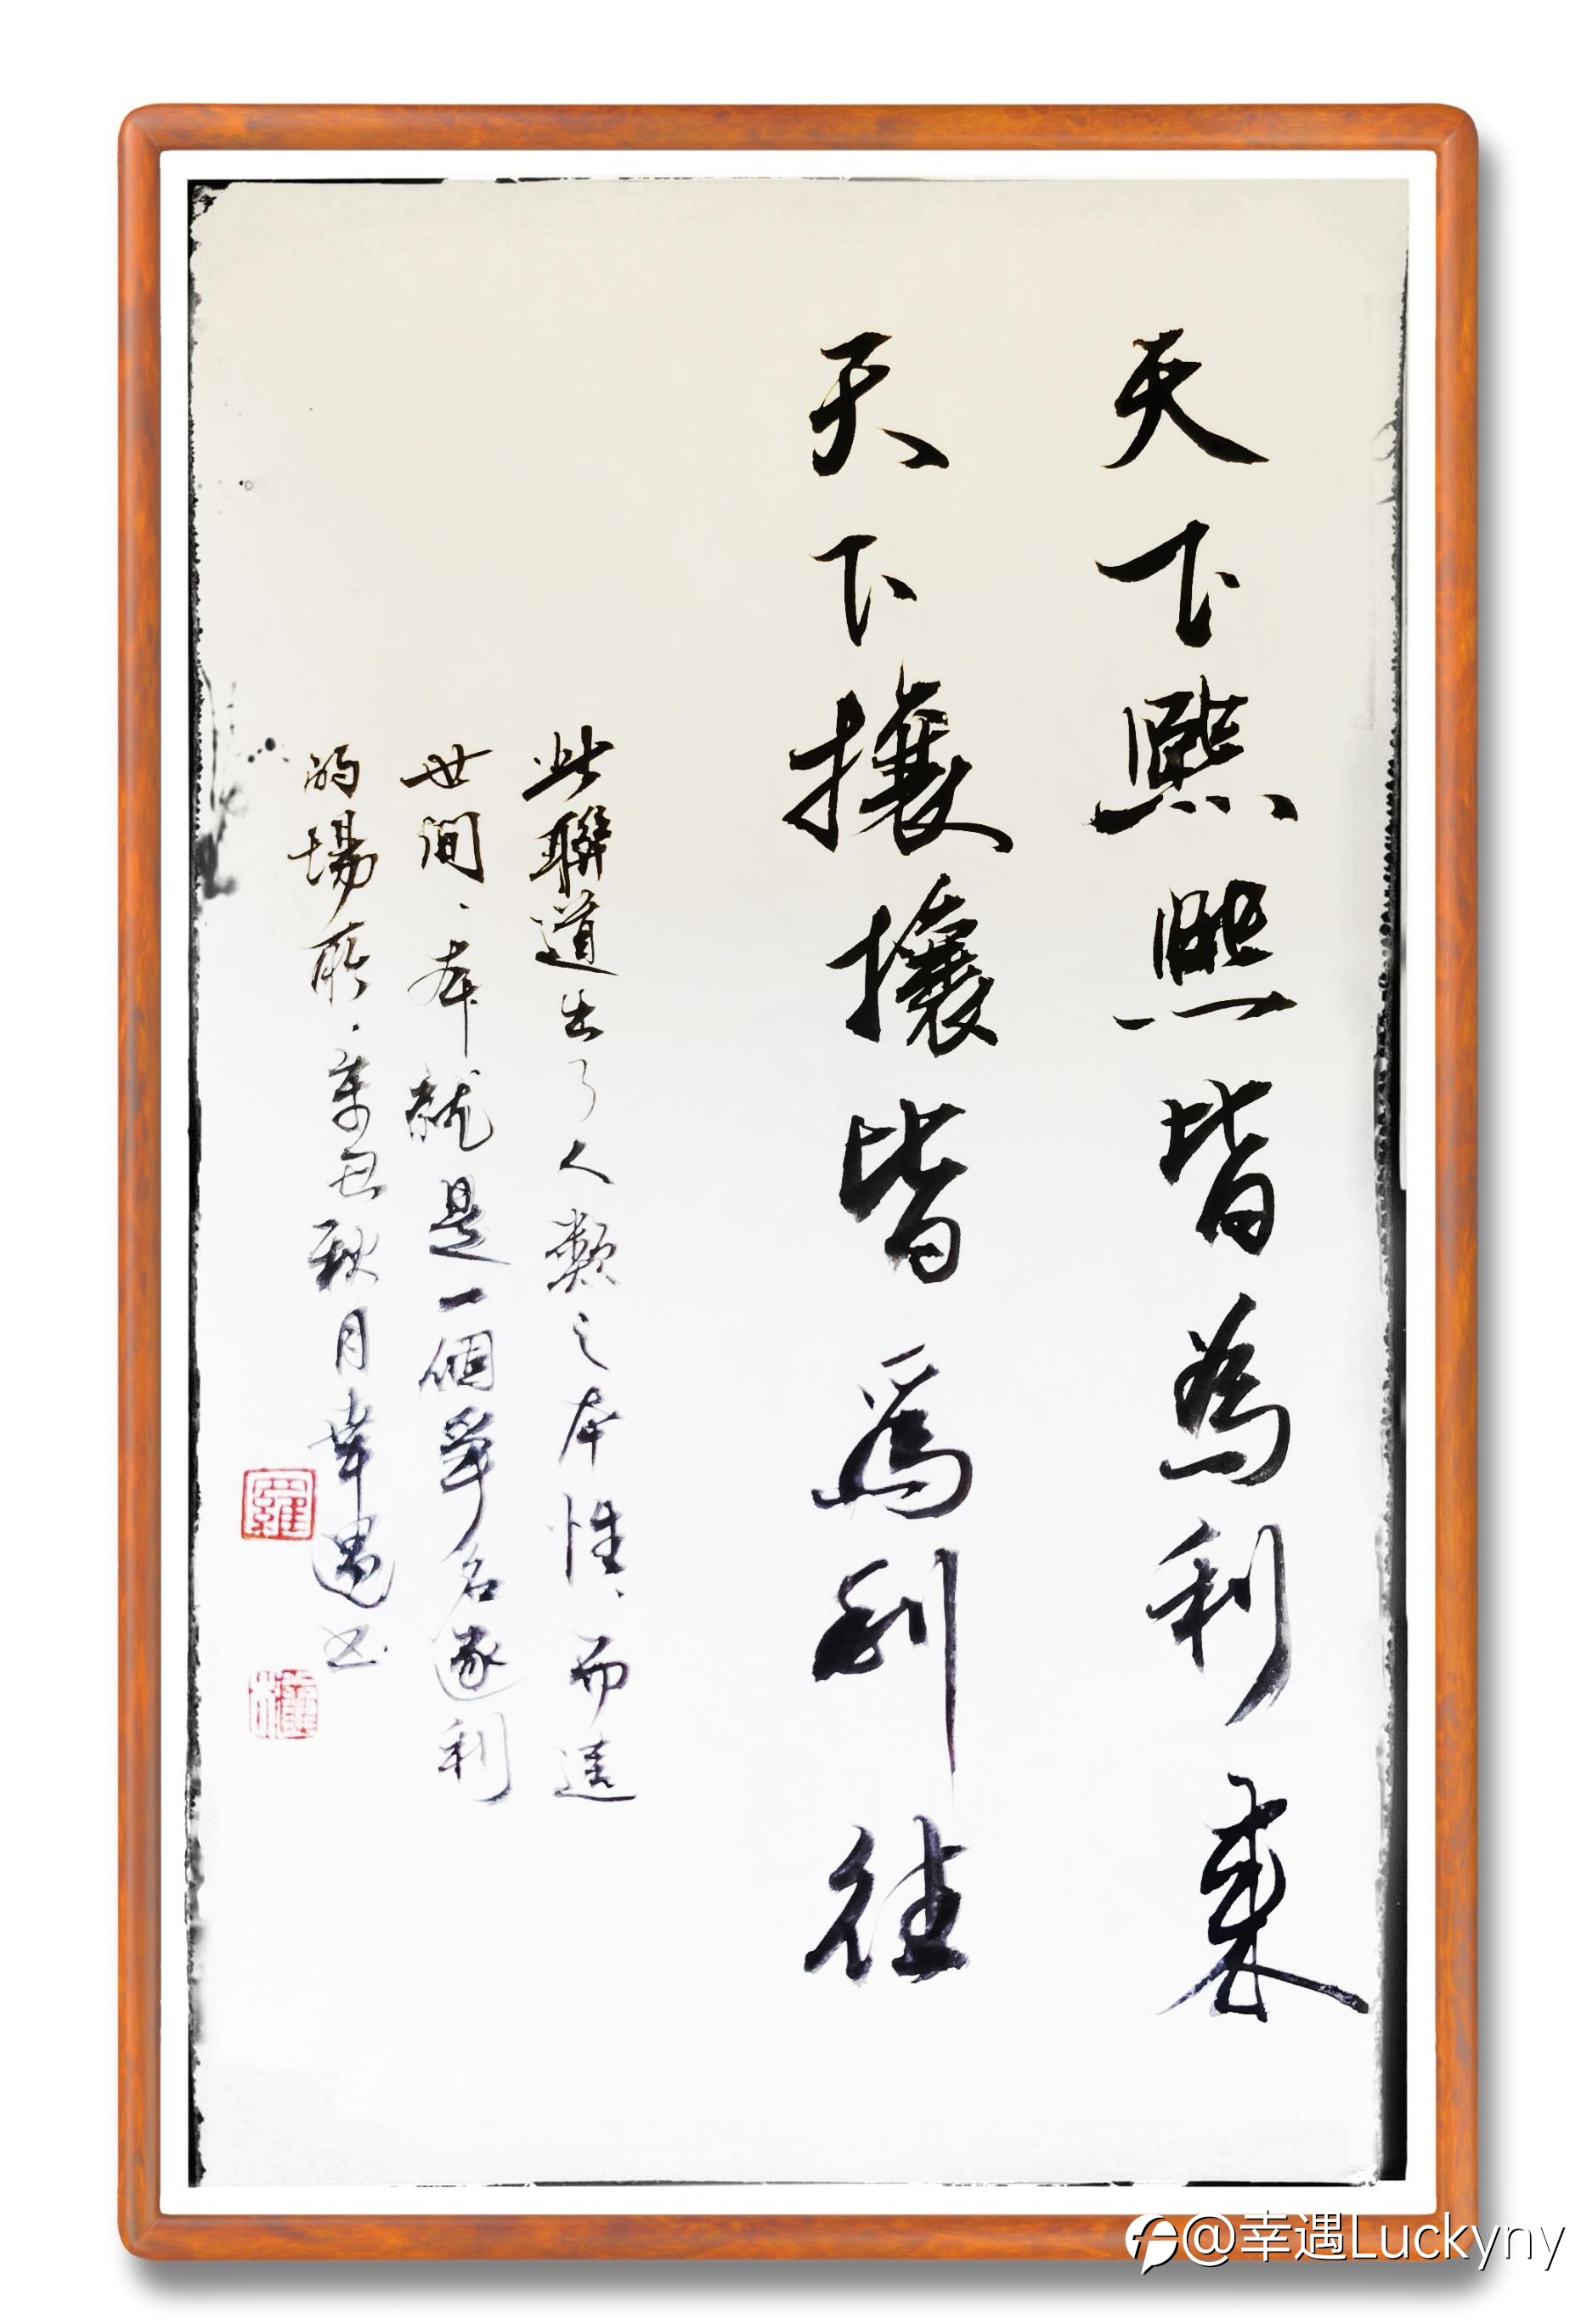 天下熙熙皆為利來
天下攘攘皆為利往
此聯道出了人類之本性、而這
世间、本就是一個爭名逐利
的場所、辛丑秋月幸遇书
羅
@幸遇Luckyny